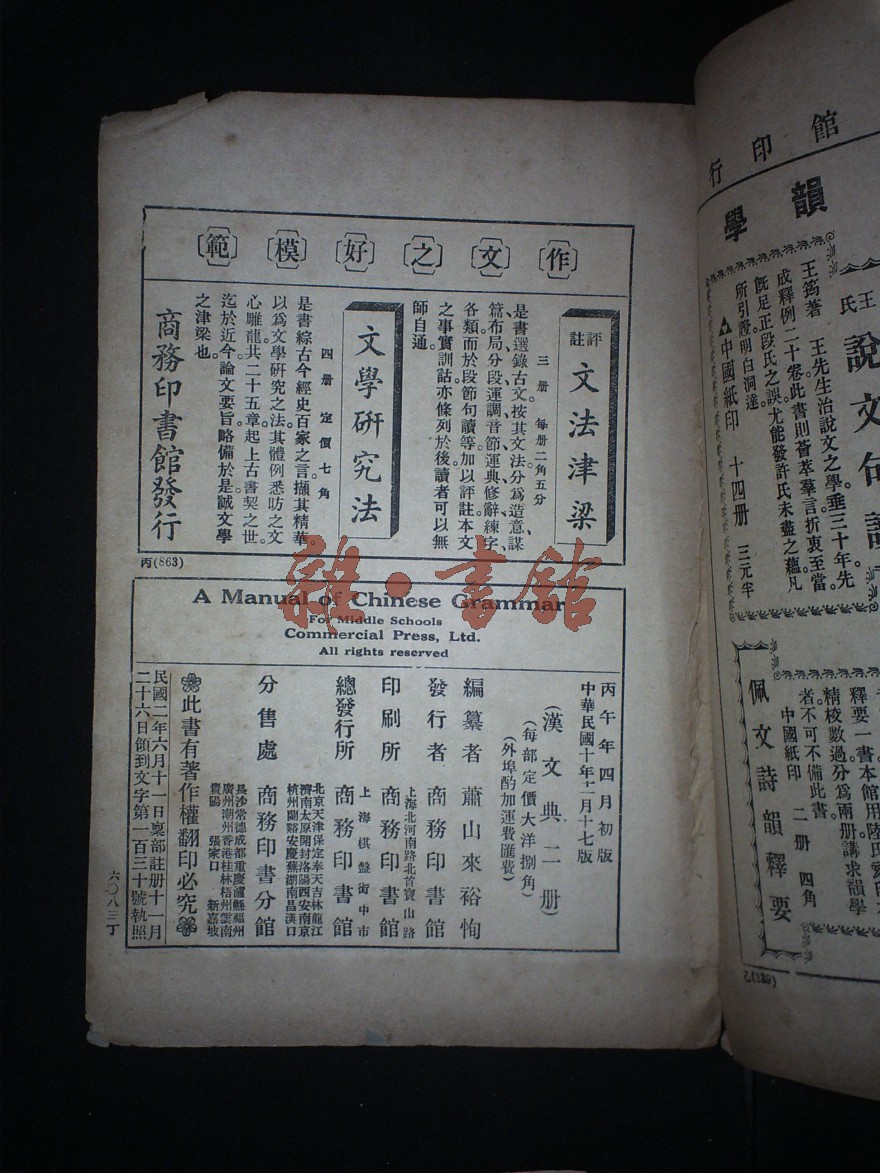 作文之好模範
評註 文法津梁
三册 每册二角五分
是書選錄古文、按其文法分爲造意謀
篇、布局、分段、運調、音節、運典、修辭、練字、
各類。而於段節句讀等。加以評註。本文
之事實訓詁。亦條列於後。讀者可以無
師自通。
文學研究法
四册 定價七角
是書綜古今經史百家之言。擷其精華。
以爲文學研究之法。其體例悉昉之文
心雕龍。共二十五章。起上古書契之世。
迄於近今。論文要旨。略備於是。誠文學
之津梁也。
商務印書館發行
丙(863)
A Manual of Chinese Grammar
For Middle Schools
Commercial Press, Ltd.
All rights reserved
丙午年四月初版
中華民國十年十二月十七版
(漢文典二册)
(每部定價大洋捌角)
(外埠酌加運費匯費)
編纂者 蕭山來裕恂
發行者 商務印書館
上海北河南路北首寶山路
印刷所 商務印書館
上海棋盤街中市
總發行所 商務印書館
北京天津保定奉天吉林龍江
濟南太原開封洛陽西安南京
杭州蘭谿安慶蕪湖南昌漢口
分售處 商務印書分館
長沙常德成都重慶瀘縣福州
廣州潮州香港桂林梧州雲南
貴陽 張家口 新嘉坡
此書有著作權翻印必究
民國二年六月十一日稟部註册十一月
二十六日領到文字第一百三十號執照
六〇八三丁
館印行
韻學
王氏說文句讀
王筠著 王先生治說文之學。垂三十年。先
成釋例二十卷。此書則薈萃羣言。折衷至當。
旣足正段氏之誤。尤能發許氏未盡之蘊。凡
所引證。明白洞達。
中國紙印 十四册 三元半
佩文詩韻釋要
釋要一書。本館用陸氏
精校數過。分爲兩册。講求韻學
者。不可不備此書。
中國紙印 二册 四角
雜·書館